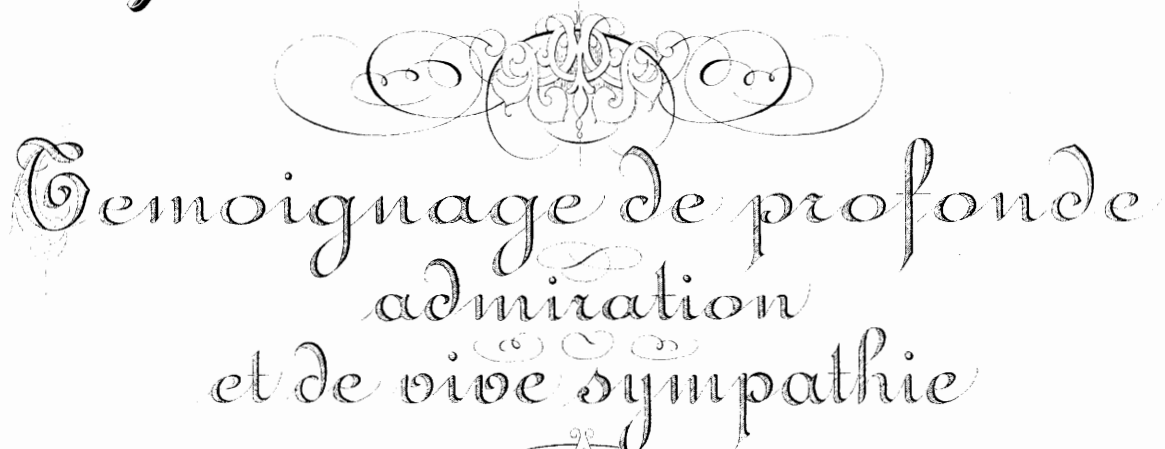 Temoignage de profonde
admiration
et de vive sympathie